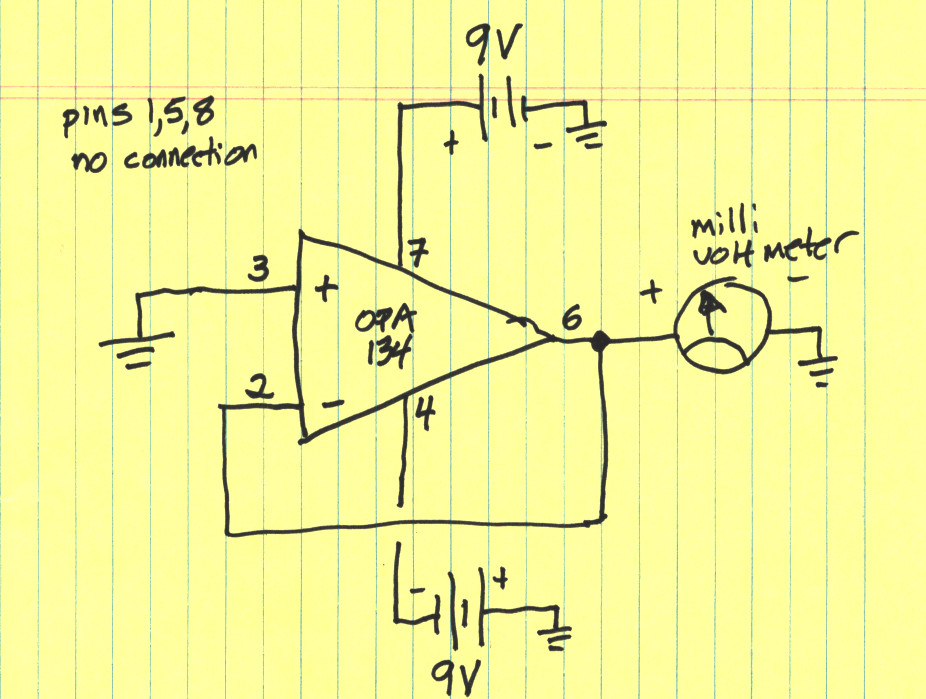 9V
+ -
pins 1,5,8
no connection
7
3
+
OPA
134
6
milli
volt meter
+ -
2
-
4
- +
9V